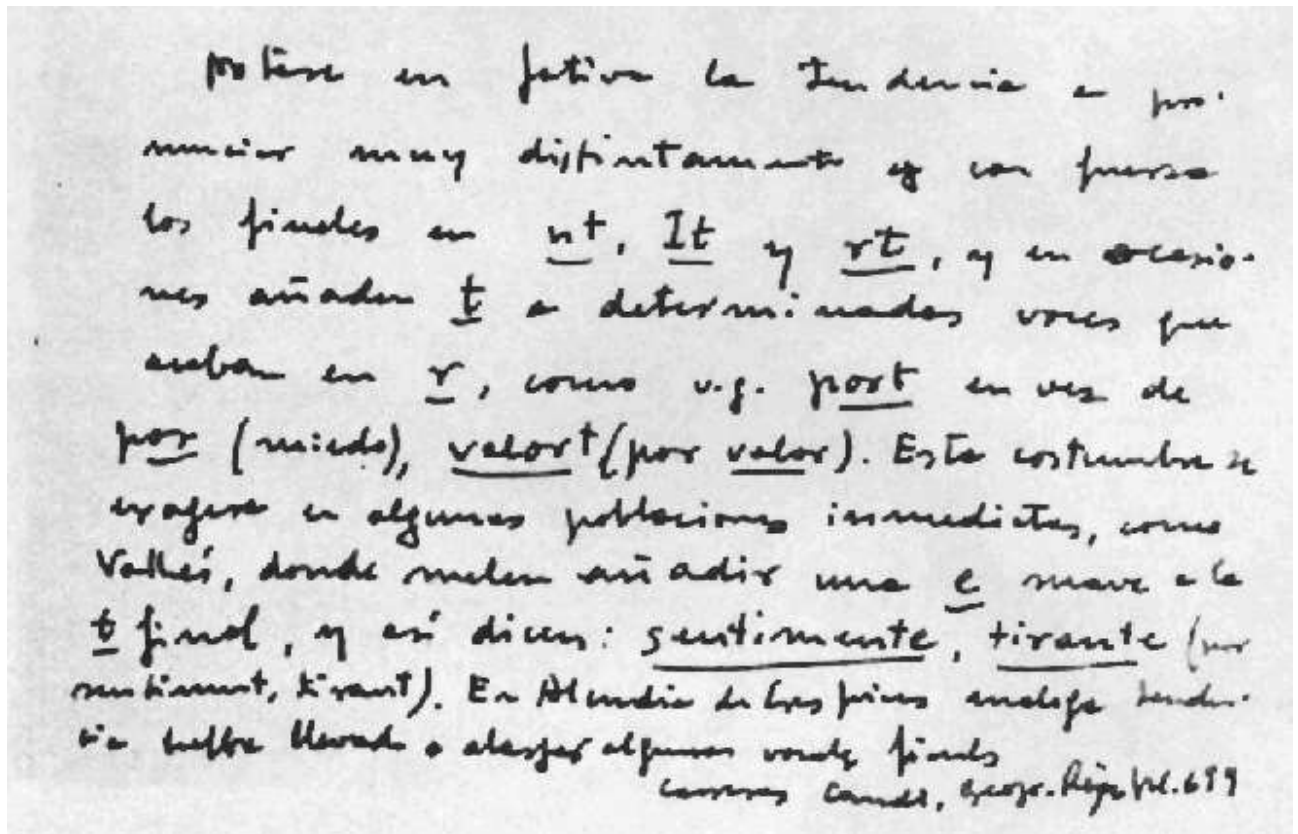 Nótase en Játiva la tendencia a pro-
nunciar muy distintamente y con fuerza
los finales en nt, lt y rt, y en ocasio-
nes añaden t a determinadas voces que
acaban en r, como v.g. port en vez de
por (miedo), valort (por valor). Esta costumbre se
exagera en algunas poblaciones inmediatas, como
Vallés, donde suelen añadir una e suave a la
t final, y así dicen: sentimente, tirante (por
sentiment, tirant). En Alcudia de Crespins analoga tenden-
cia lleva a alargar algunas finals
Carreras Candi, Geogr. 699